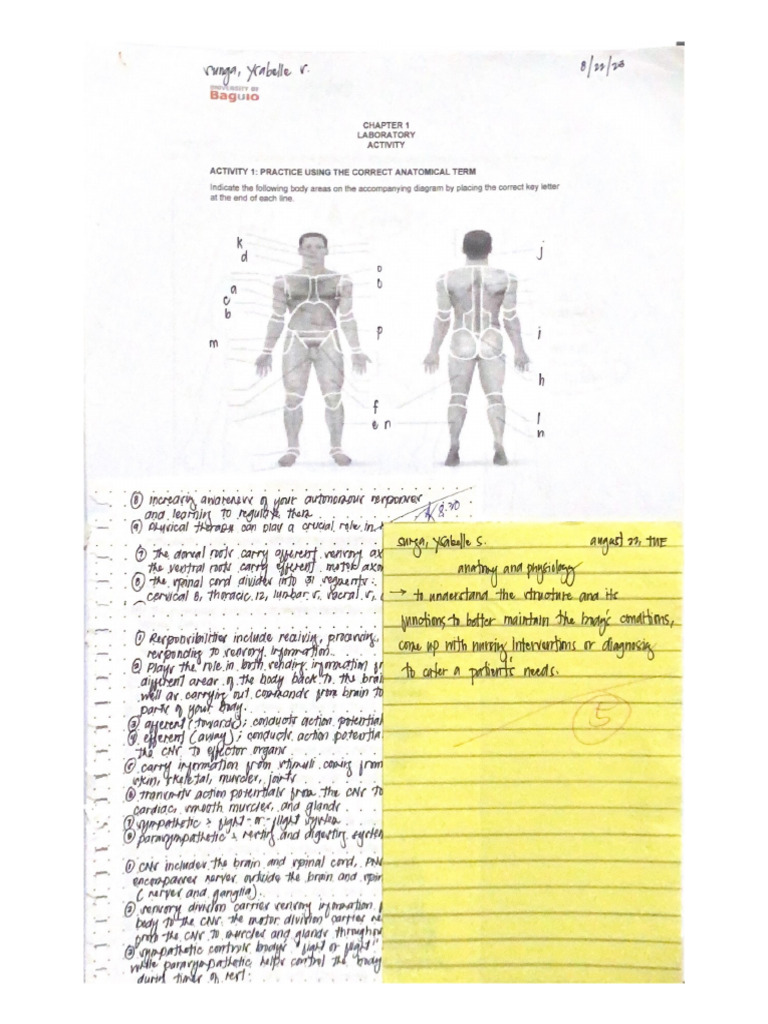 Sunga, Ysabelle S.
8/22/23
UNIVERSITY OF
Baguio
CHAPTER 1
LABORATORY
ACTIVITY
ACTIVITY 1: PRACTICE USING THE CORRECT ANATOMICAL TERM
Indicate the following body areas on the accompanying diagram by placing the correct key letter
at the end of each line.
k
d
a
c
b
m
o
p
f
e n
j
i
h
l
n
⑧ increasing awareness of your autonomous responses
and learning to regulate them
⑨ physical therapy can play a crucial role in
8:30
⑦ the dorsal roots carry afferent sensory ax
the ventral roots carry efferent motor axon
⑧ the spinal cord divides into 31 segments:
cervical 8, thoracic 12, lumbar 5, sacral 5,
① Responsibilities include receiving, processing,
responding to sensory information.
② Plays the role in both sending information fr
different areas of the body back to the brain
well as carrying out commands from brain to
parts of your body.
③ afferent (towards); conducts action potential
④ efferent (away); conducts action potentia
the CNS to effector organs
⑤ carry information from stimuli coming from
skin, skeletal, muscles, joints
⑥ transmits action potentials from the CNS to
cardiac, smooth muscles, and glands
⑦ sympathetic > fight-or-flight system
⑧ parasympathetic > resting and digesting system
① CNS includes the brain and spinal cord, PNS
encompasses nerves outside the brain and spin
(nerves and ganglia).
② sensory division carries sensory information
body to the CNS. the motor division carries ne
from the CNS to muscles and glands through
③ sympathetic controls body's "fight or flight"
while parasympathetic helps control the body
during times of rest.
Sunga, Ysabelle S.
august 22, TUE
anatomy and physiology
→ to understand the structure and its
functions to better maintain the body's conditions,
come up with nursing interventions or diagnosis
to cater a patient's needs.
5